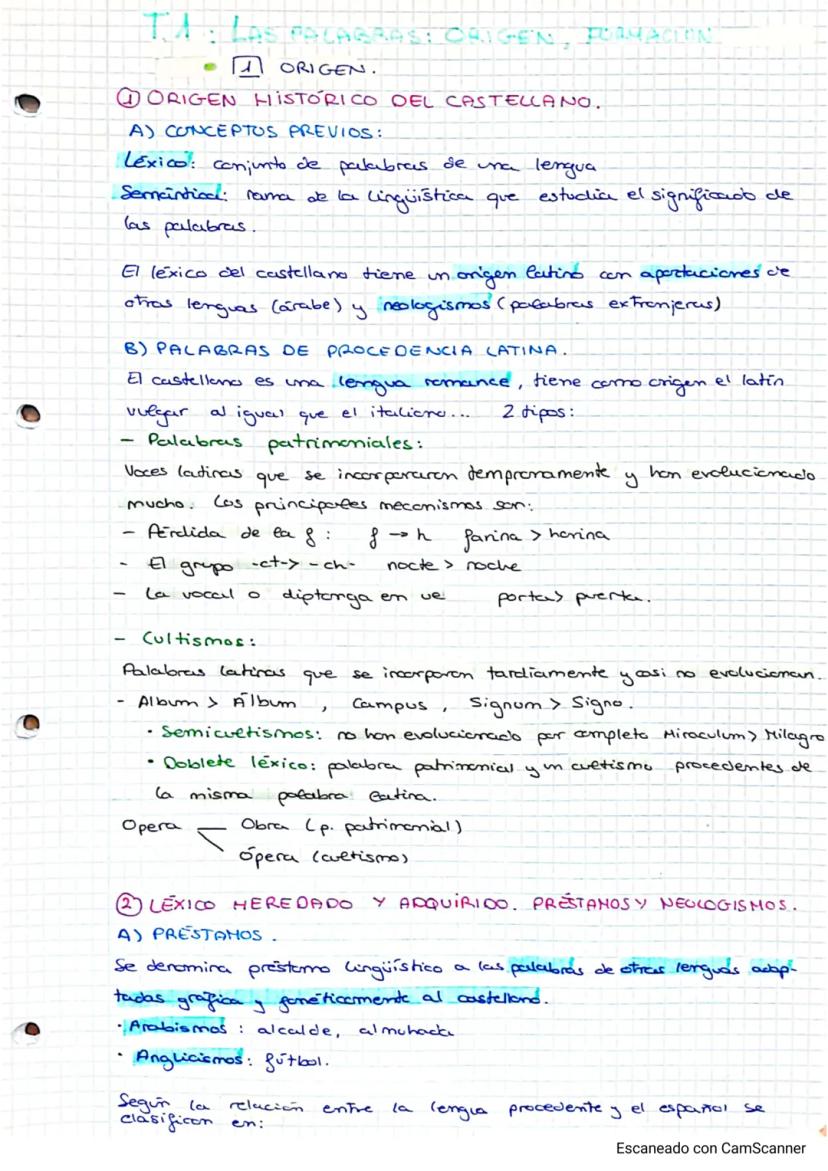 T.1: LAS PALABRAS: ORIGEN, FORMACIÓN
• 1 ORIGEN.
① ORIGEN HISTÓRICO DEL CASTELLANO.
A) CONCEPTOS PREVIOS:
Léxico: conjunto de palabras de una lengua
Semántica: rama de la lingüística que estudia el significado de
las palabras.
El léxico del castellano tiene un origen latino con aportaciones de
otras lenguas (árabe) y neologismos (palabras extranjeras)
B) PALABRAS DE PROCEDENCIA LATINA.
El castellano es una lengua romance, tiene como origen el latín
vulgar al igual que el italiano... 2 tipos:
- Palabras patrimoniales:
Voces latinas que se incorporaron tempranamente y han evolucionado
mucho. Los principales mecanismos son:
- Pérdida de la f: f → h farina > harina
- El grupo -ct-> -ch- nocte > noche
- La vocal o diptonga en ue porta > puerta.
- Cultismos:
Palabras latinas que se incorporan tardíamente y casi no evolucionan.
- Album > Álbum, Campus, Signum > Signo.
• Semicultismos: no han evolucionado por completo Miraculum > Milagro
• Doblete léxico: palabra patrimonial y un cultismo procedentes de
la misma palabra latina.
Opera — Obra (p. patrimonial)
ópera (cultismo)
② LÉXICO HEREDADO Y ADQUIRIDO. PRÉSTAMOS Y NEOLOGISMOS.
A) PRÉSTAMOS.
Se denomina préstamo lingüístico a las palabras de otras lenguas adap-
tadas gráfica y fonéticamente al castellano.
• Arabismos: alcalde, almohada
• Anglicismos: fútbol.
Según la relación entre la lengua procedente y el español se
clasifican en:
Escaneado con CamScanner